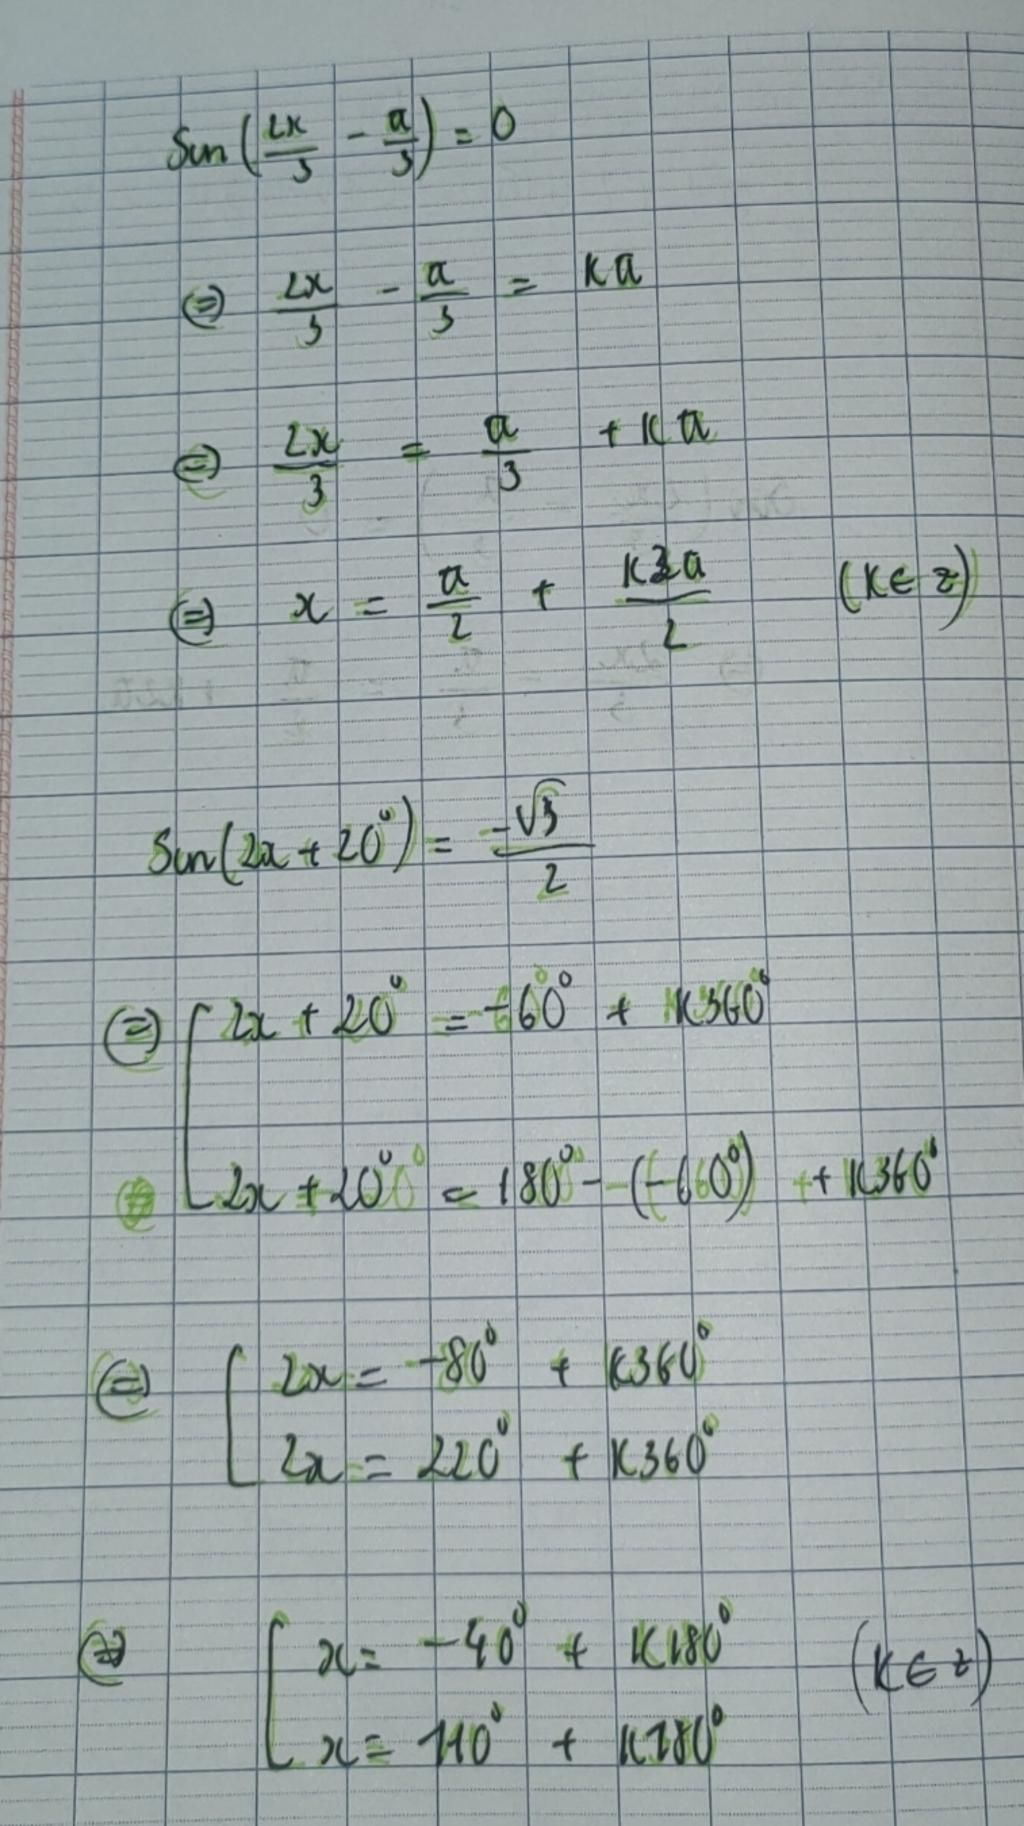 Sin(2x/3 - π/3) = 0
⇔ 2x/3 - π/3 = kπ
⇔ 2x/3 = π/3 + kπ
⇔ x = π/2 + k3π/2 (k ∈ Z)
Sin(2x + 20°) = -√3/2
⇔ [ 2x + 20° = -60° + k360°
2x + 20° = 180° - (-60°) + k360°
⇔ [ 2x = -80° + k360°
2x = 220° + k360°
⇔ [ x = -40° + k180° (k ∈ Z)
x = 110° + k180°